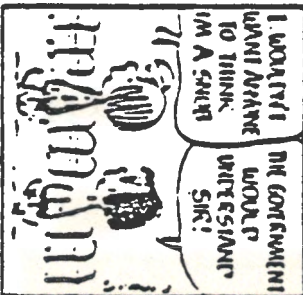 I WOULDN'T
WANT ANYONE
TO THINK
I'M A
THE GOVERNMENT
WOULD
UNDERSTAND
SIR!